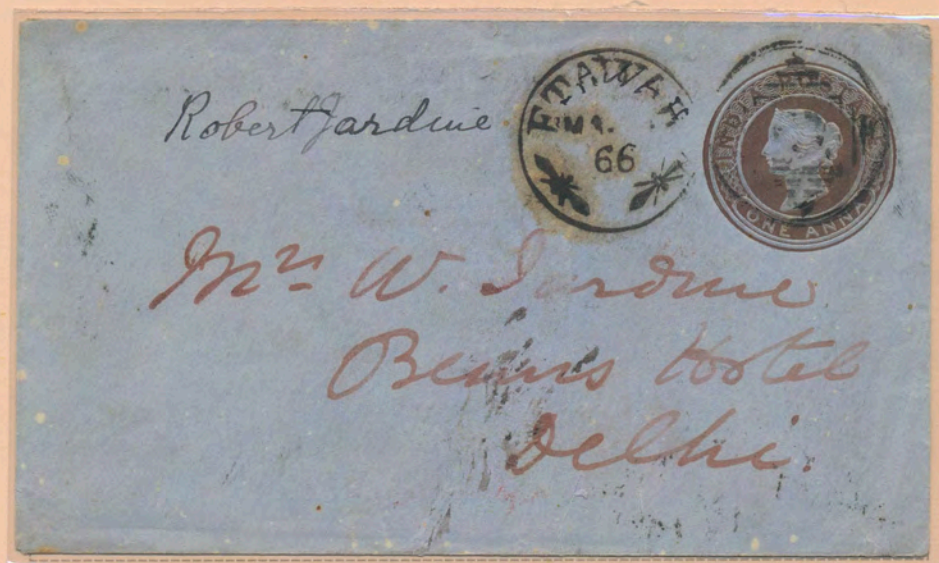 Robert Jardine
ETAWAH
MA.
66
INDIA POSTAGE
ONE ANNA
Mrs W. Jardine
Benns Hotel
Delhi.